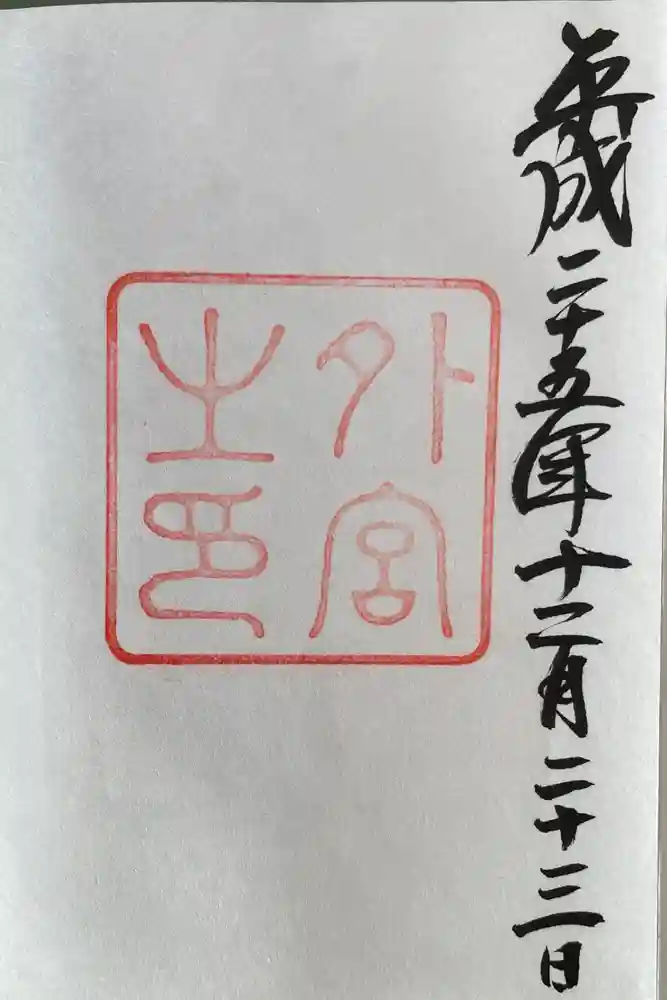 平成二十五年十二月二十三日
外宮
之印